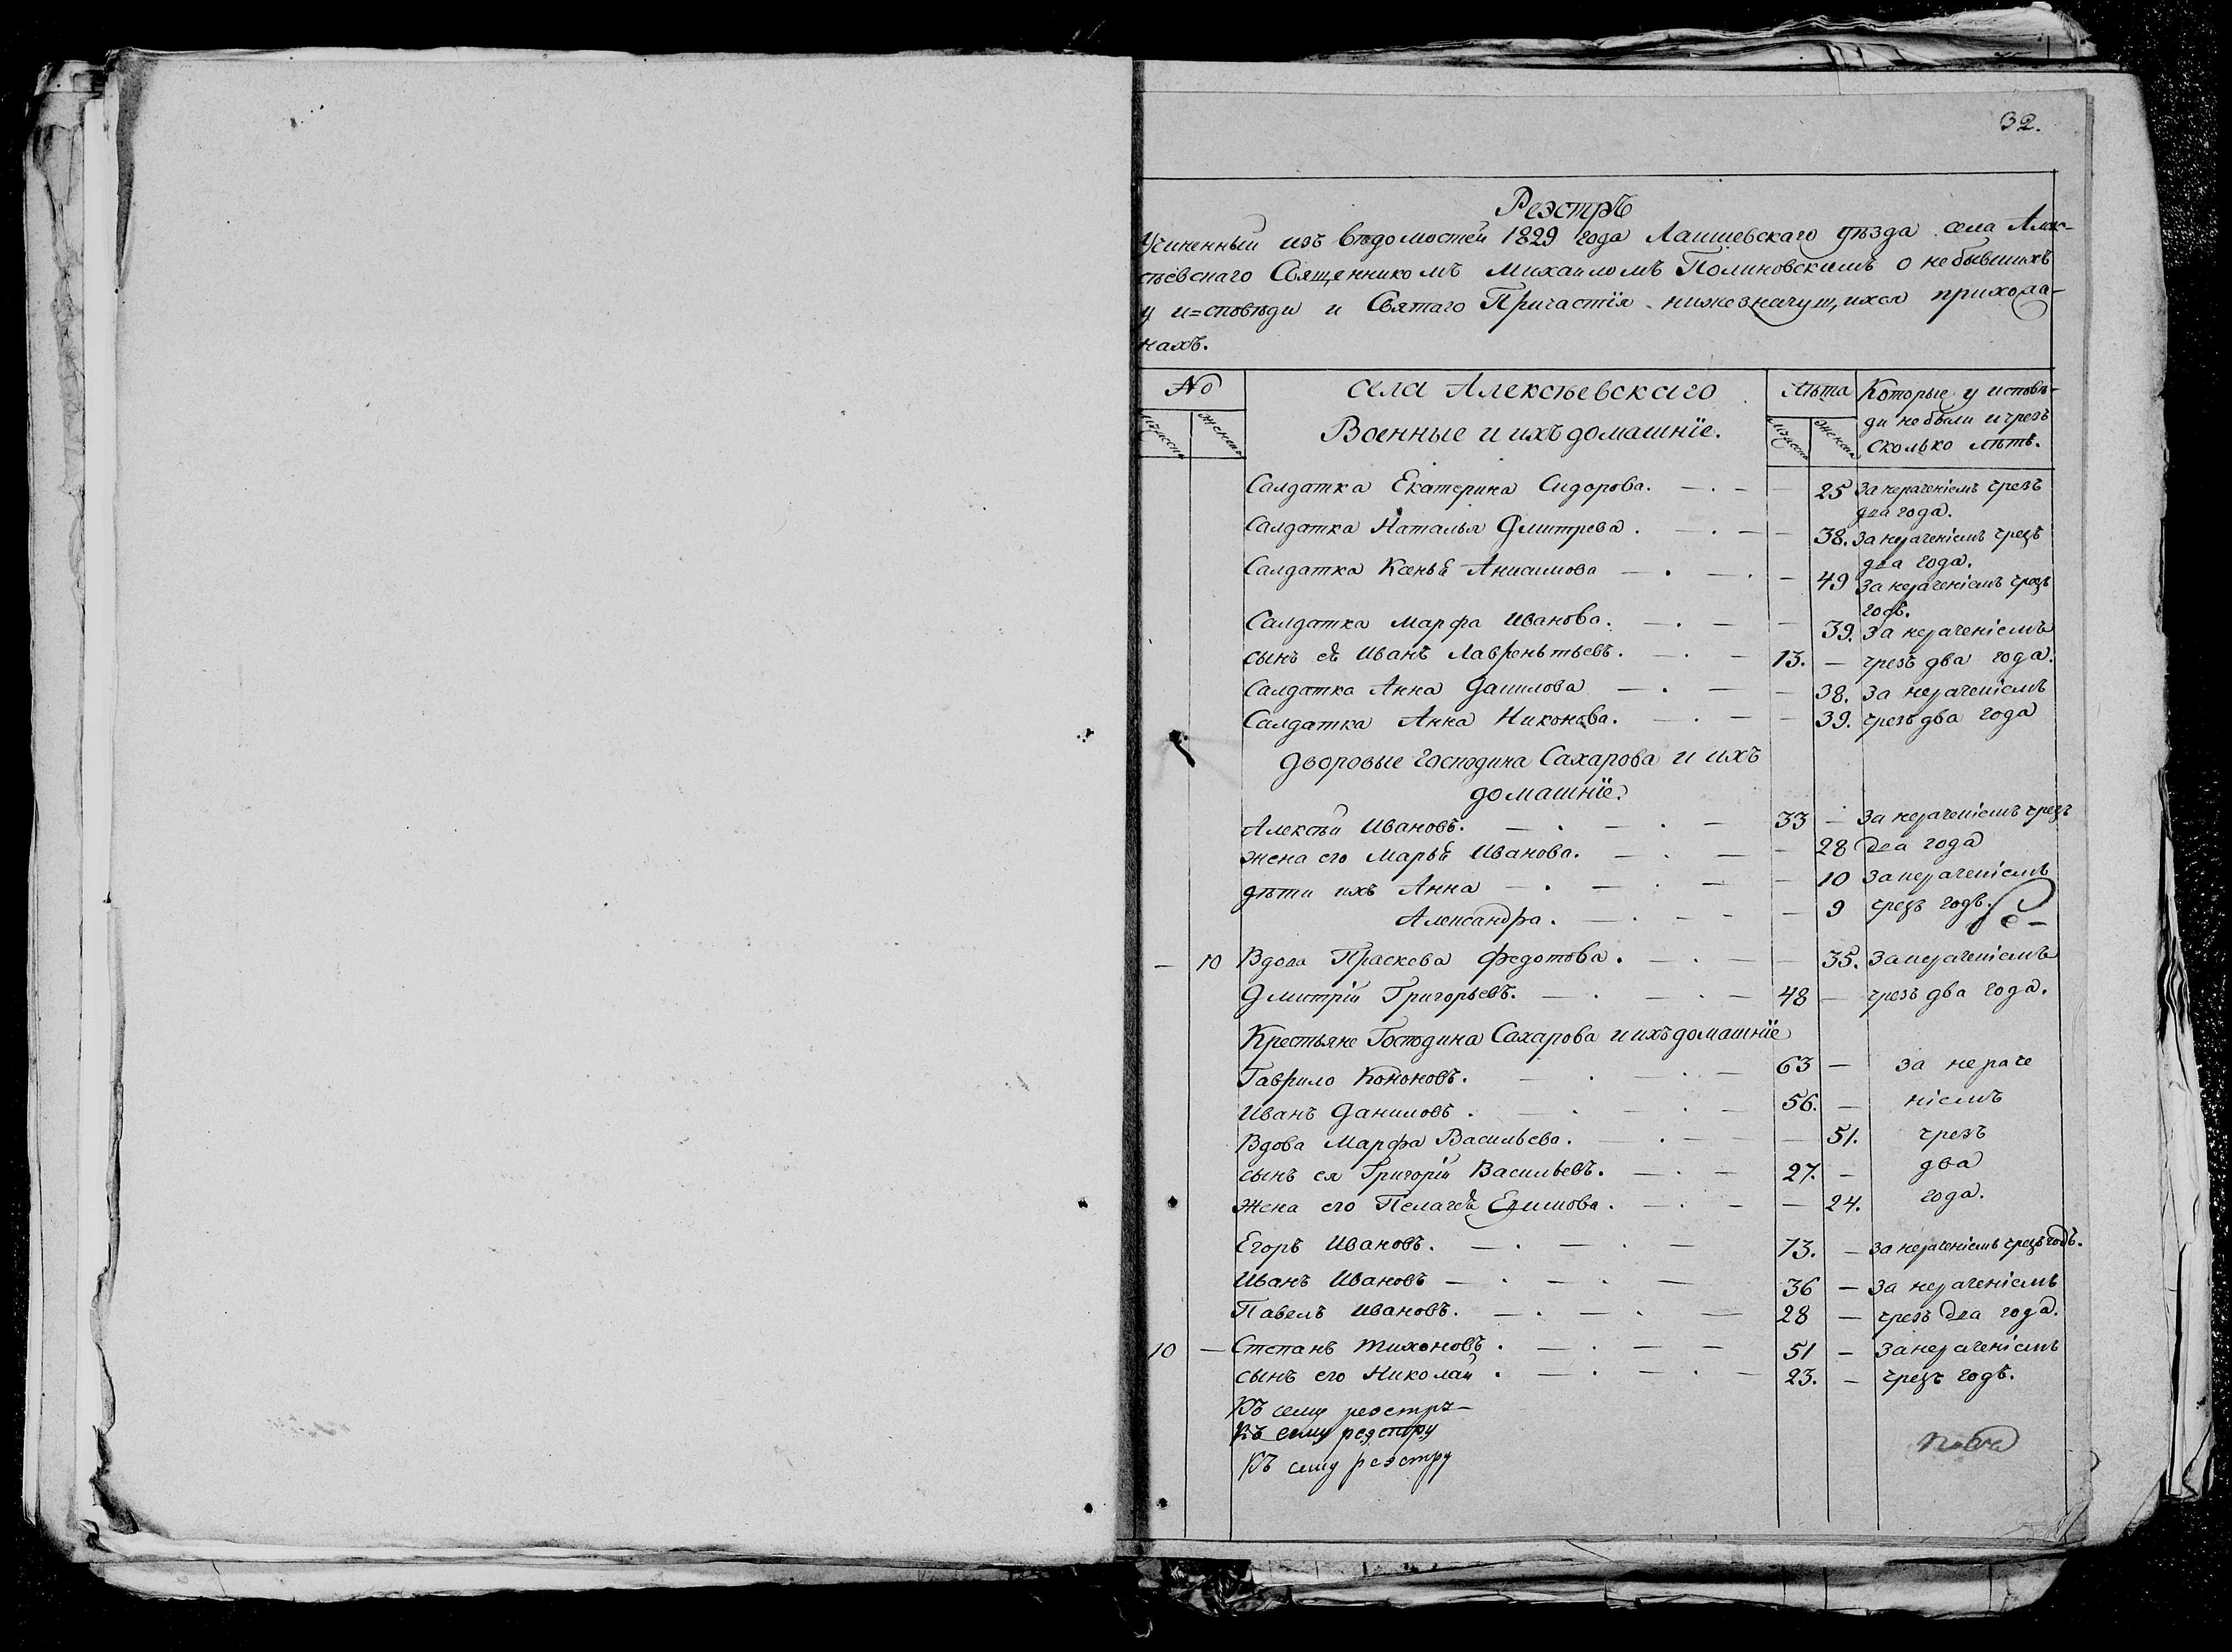 32.
Реэстръ
Учиненный изъ вѣдомостей 1829 года Лаишевскаго уѣзда села Алек-
сѣевскаго Священникомъ Михаиломъ Полиновскимъ о небывшихъ
у и=сповѣди и Святаго Причастїя нижезначущихся прихожа-
нахъ.
No села Алексѣевскаго Лѣта Которые у исповѣ-
Военные и ихъ домашнїе. ди не были и чрезъ
сколько лѣтъ.
Салдатка Екатерина Сидорова. — . — — 25 За нераченіемъ чрезъ
два года.
Салдатка Наталья Дмитрева . — . — — 38. За нераченіемъ чрезъ
два года.
Салдатка Ксенья Анисимова — . — . — 49 За нераченіемъ чрезъ
годъ.
Салдатка Марфа Иванова. — . — — 39. За нераченіемъ
сынъ ея Иванъ Лаврентьевъ. — . — 13. — чрезъ два года.
Салдатка Анна Данилова — . — — 38. За нераченіемъ
Салдатка Анна Никонова. — . — — 39. чрезъ два года
Дворовые Господина Сахарова и ихъ
домашнїе.
Алексѣй Ивановъ. — . — . — 33 — За нераченіемъ чрезъ
жена его Марья Иванова. — . — — 28 два года
дѣти ихъ Анна — . — . — — 10 За нераченіемъ
Александра. — . — — — 9 чрезъ годъ.
— 10 Вдова Праскева Федотова. — . — — 35. За нераченіемъ
Дмитрій Григорьевъ. — . — . — 48 — чрезъ два года.
Крестьяне Господина Сахарова и ихъ домашнїе
Гаврило Кононовъ. — . — . — 63 — За нераче
Иванъ Даниловъ . — . — . — 56. — ніемъ
Вдова Марфа Васильева. — . — — — 51. чрезъ
сынъ ея Григорій Васильевъ. — . — 27. — два
жена его Пелагея Ефимова. — . — — 24. года.
Егоръ Ивановъ. — . — . — 73. — За нераченіемъ чрезъ годъ.
Иванъ Ивановъ — . — . — 36 — За нераченіемъ
Павелъ Ивановъ. — . — . — 28 — чрезъ два года.
10 — Степанъ Тихоновъ . — . — — 51 — За нераченіемъ
сынъ его Николай . — . — . — 23. — чрезъ годъ.
Къ сему реэстръ-
Къ сему реэстру
Къ сему реэстру